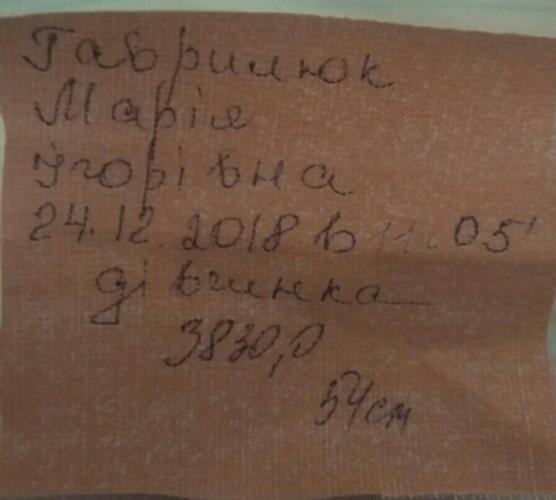 Гаврилюк
Марія
Ігорівна
24.12.2018 в 11.05'
дівчинка
3830,0
54см